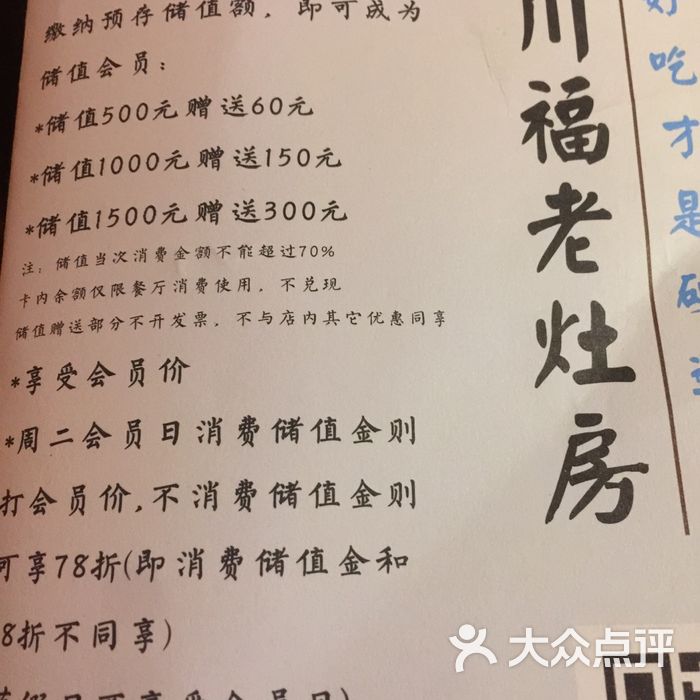 缴纳预存储值额，即可成为
储值会员：
*储值500元赠送60元
*储值1000元赠送150元
*储值1500元赠送300元
注：储值当次消费金额不能超过70%
卡内余额仅限餐厅消费使用，不兑现
储值赠送部分不开发票，不与店内其它优惠同享
*享受会员价
*周二会员日消费储值金则
打会员价,不消费储值金则
可享78折(即消费储值金和
8折不同享)
假日可享受会员日)
川福老灶房
好吃才是硬道
大众点评